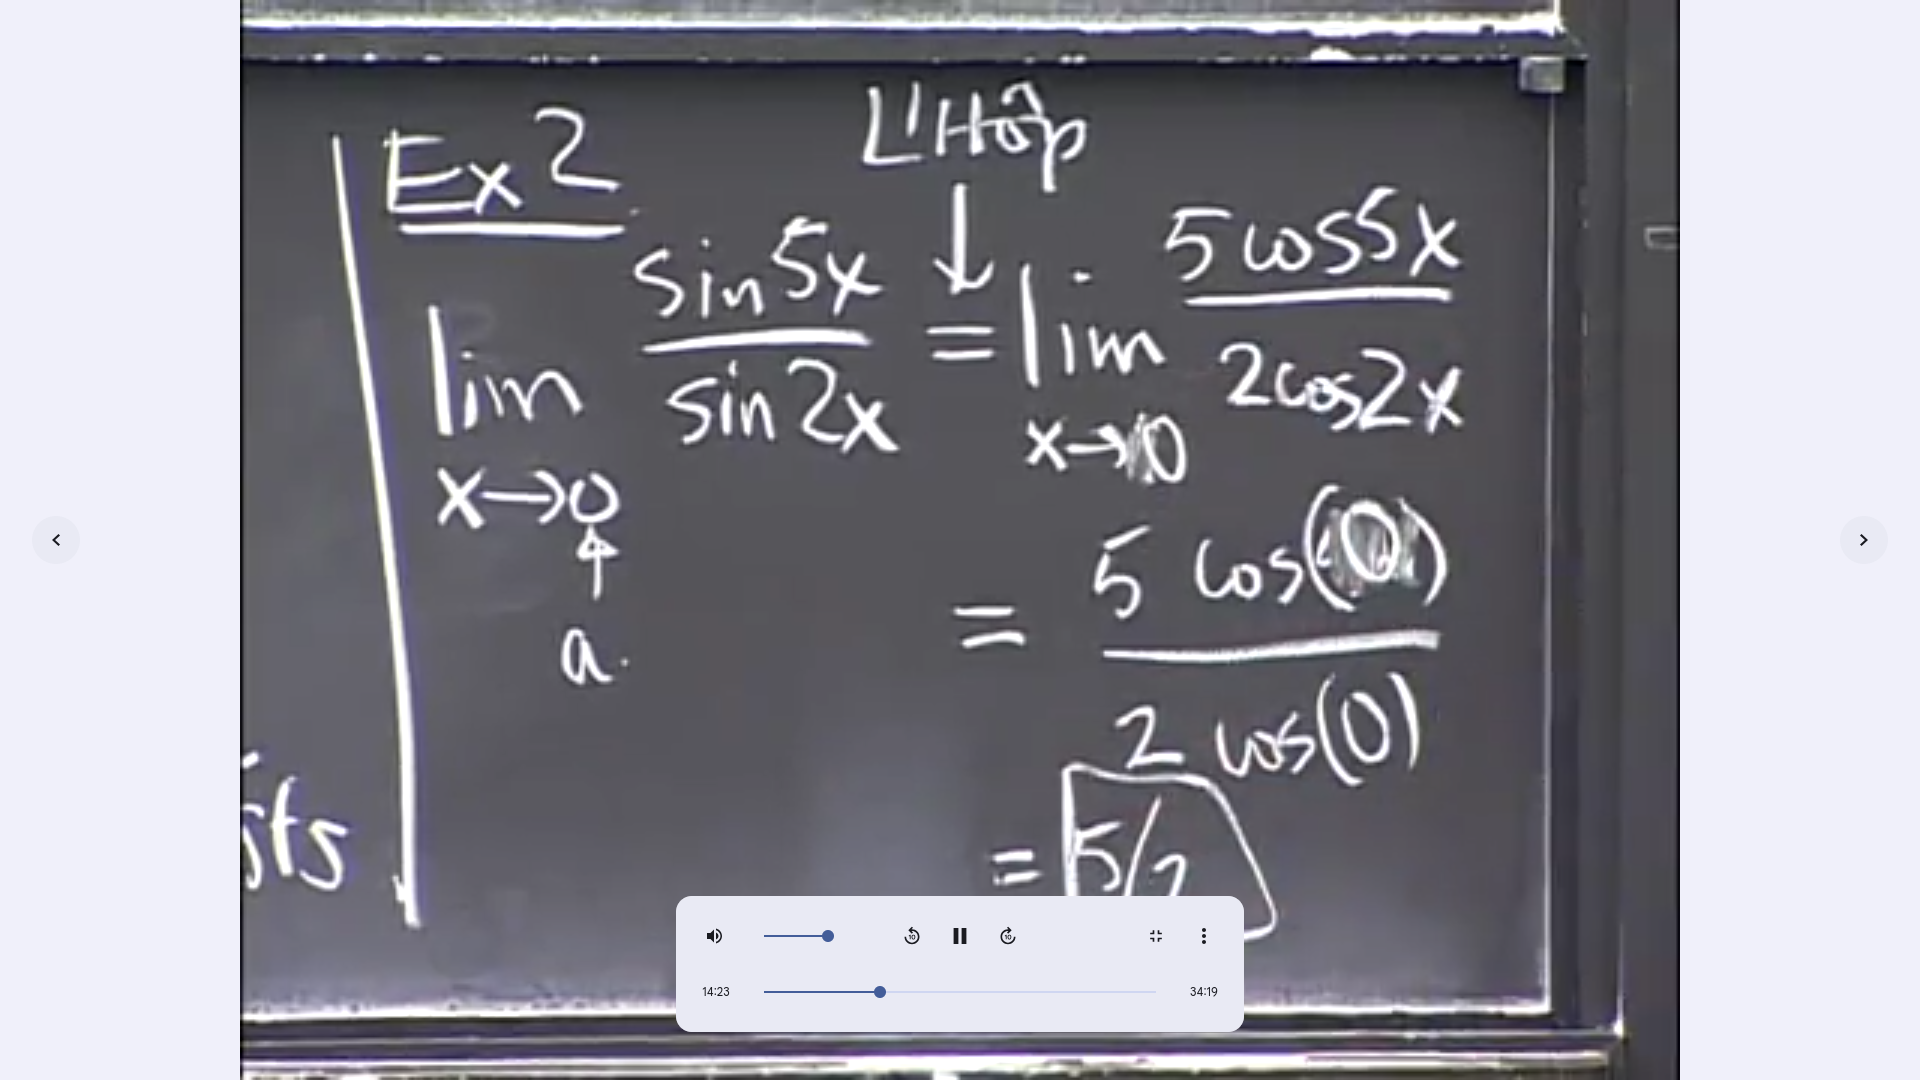 Ex 2
L'Hôp
↓
lim x→0 sin 5x / sin 2x = lim x→0 5 cos 5x / 2 cos 2x
↑
a.
= 5 cos(0) / 2 cos(0)
= 5/2
sts
14:23
34:19